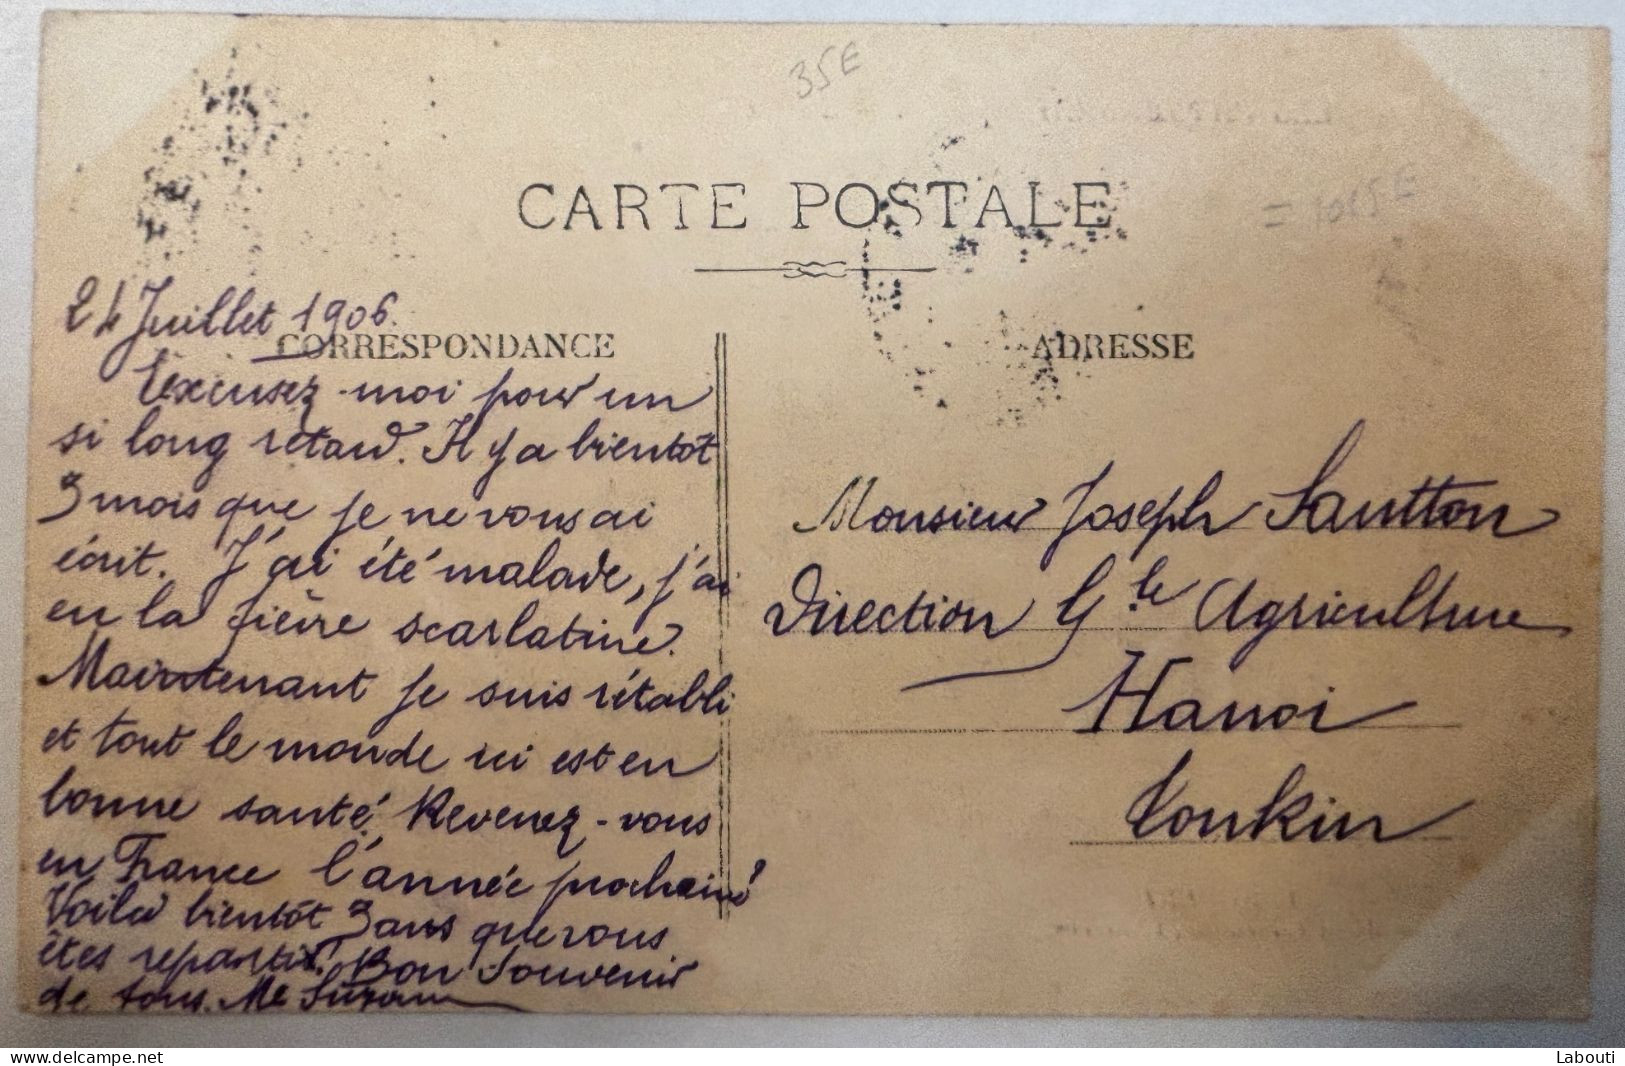 35E
CARTE POSTALE
24 Juillet 1906.
CORRESPONDANCE
ADRESSE
Excusez-moi pour un
si long retard. Il y a bientôt
3 mois que je ne vous ai
écrit. J'ai été malade, j'ai
eu la fièvre scarlatine.
Maintenant je suis rétabli
et tout le monde ici est en
bonne santé. Revenez-vous
en France l'année prochaine?
Voilà bientôt 3 ans que vous
êtes reparti. Bon Souvenir
de tous. Me
Monsieur Joseph Sautton
Direction Gle Agriculture
Hanoi
Tonkin
delcampe.net
Labouti